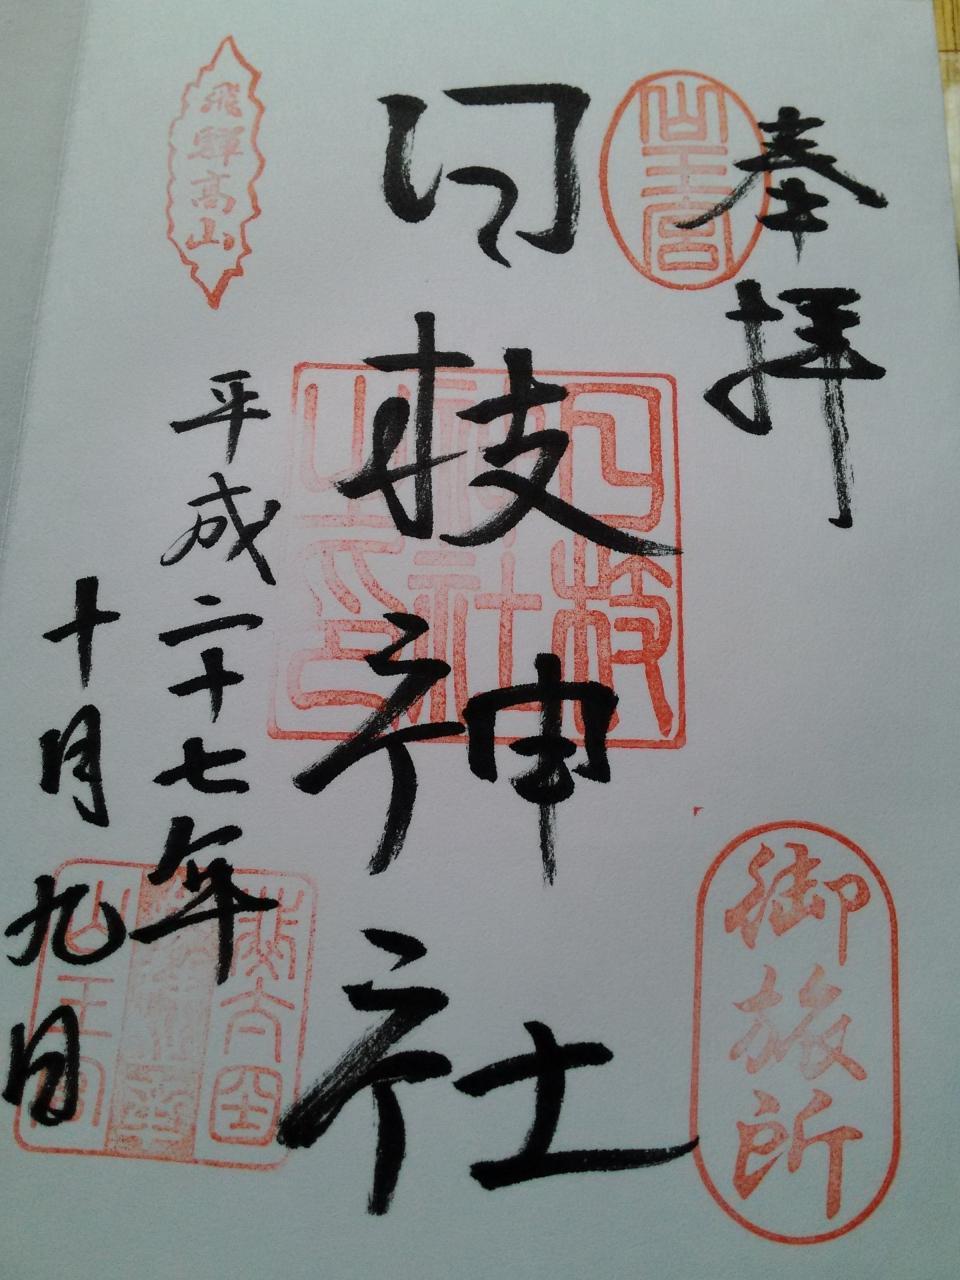 奉拝
山王宮
御旅所
日枝神社
日枝神社之印
飛騨高山
平成二十七年
十月九日
山王宮